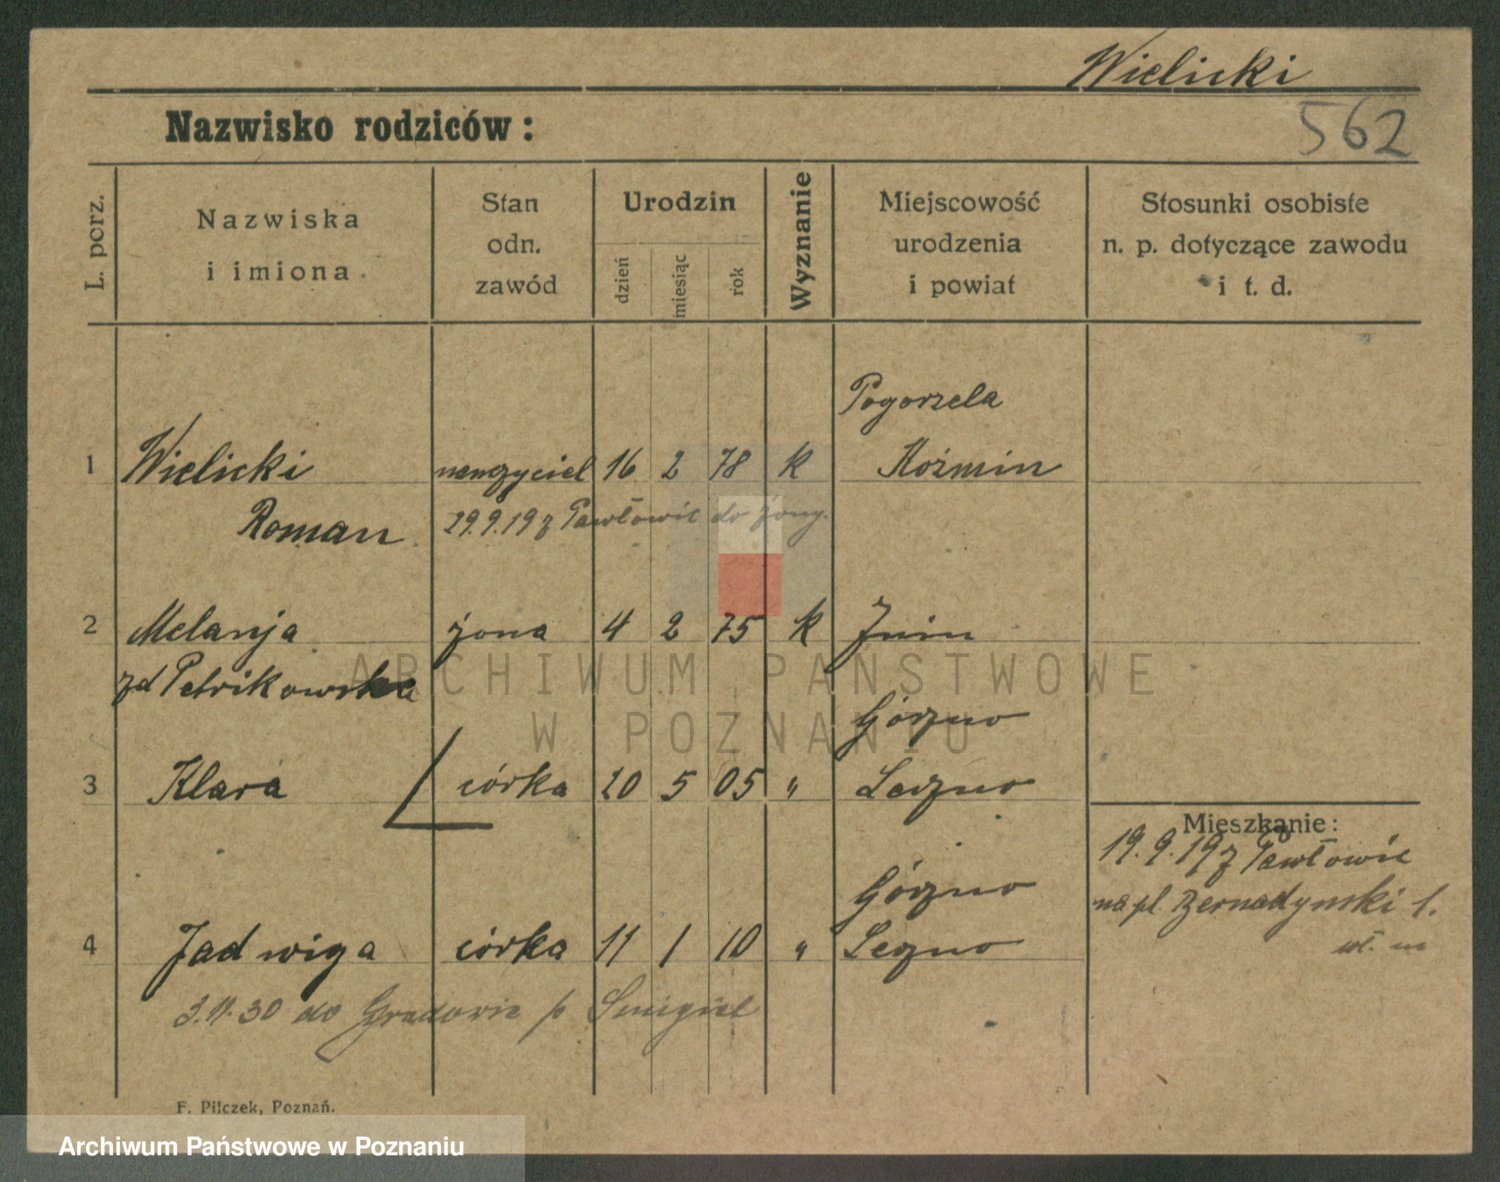 Wielicki
562
Nazwisko rodziców:
L. porz.
Nazwiska
i imiona
Stan
odn.
zawód
Urodzin
dzień
miesiąc
rok
Wyznanie
Miejscowość
urodzenia
i powiat
Stosunki osobiste
n. p. dotyczące zawodu
i t. d.
Pogorzela
1 Wielicki nauczyciel 16 2 78 k Koźmin
Roman 29.9.19 z Pawłowic do żony.
2 Melanja żona 4 2 75 k Żnin
zd Petrikowska
Górzno
3 Klara córka 20 5 05 " Leszno
Mieszkanie:
19.9.19 z Pawłowic
na pl. Bernadyński 1.
Górzno
4 Jadwiga córka 11 1 10 " Leszno
3.11.30 do p Smigiel
F. Pilczek, Poznań.
ARCHIWUM PAŃSTWOWE
W POZNANIU
Archiwum Państwowe w Poznaniu